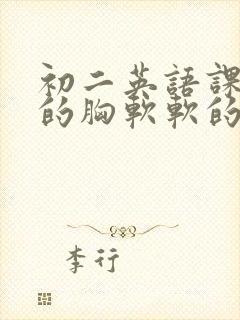 初二英語課
的胸軟軟的
李行